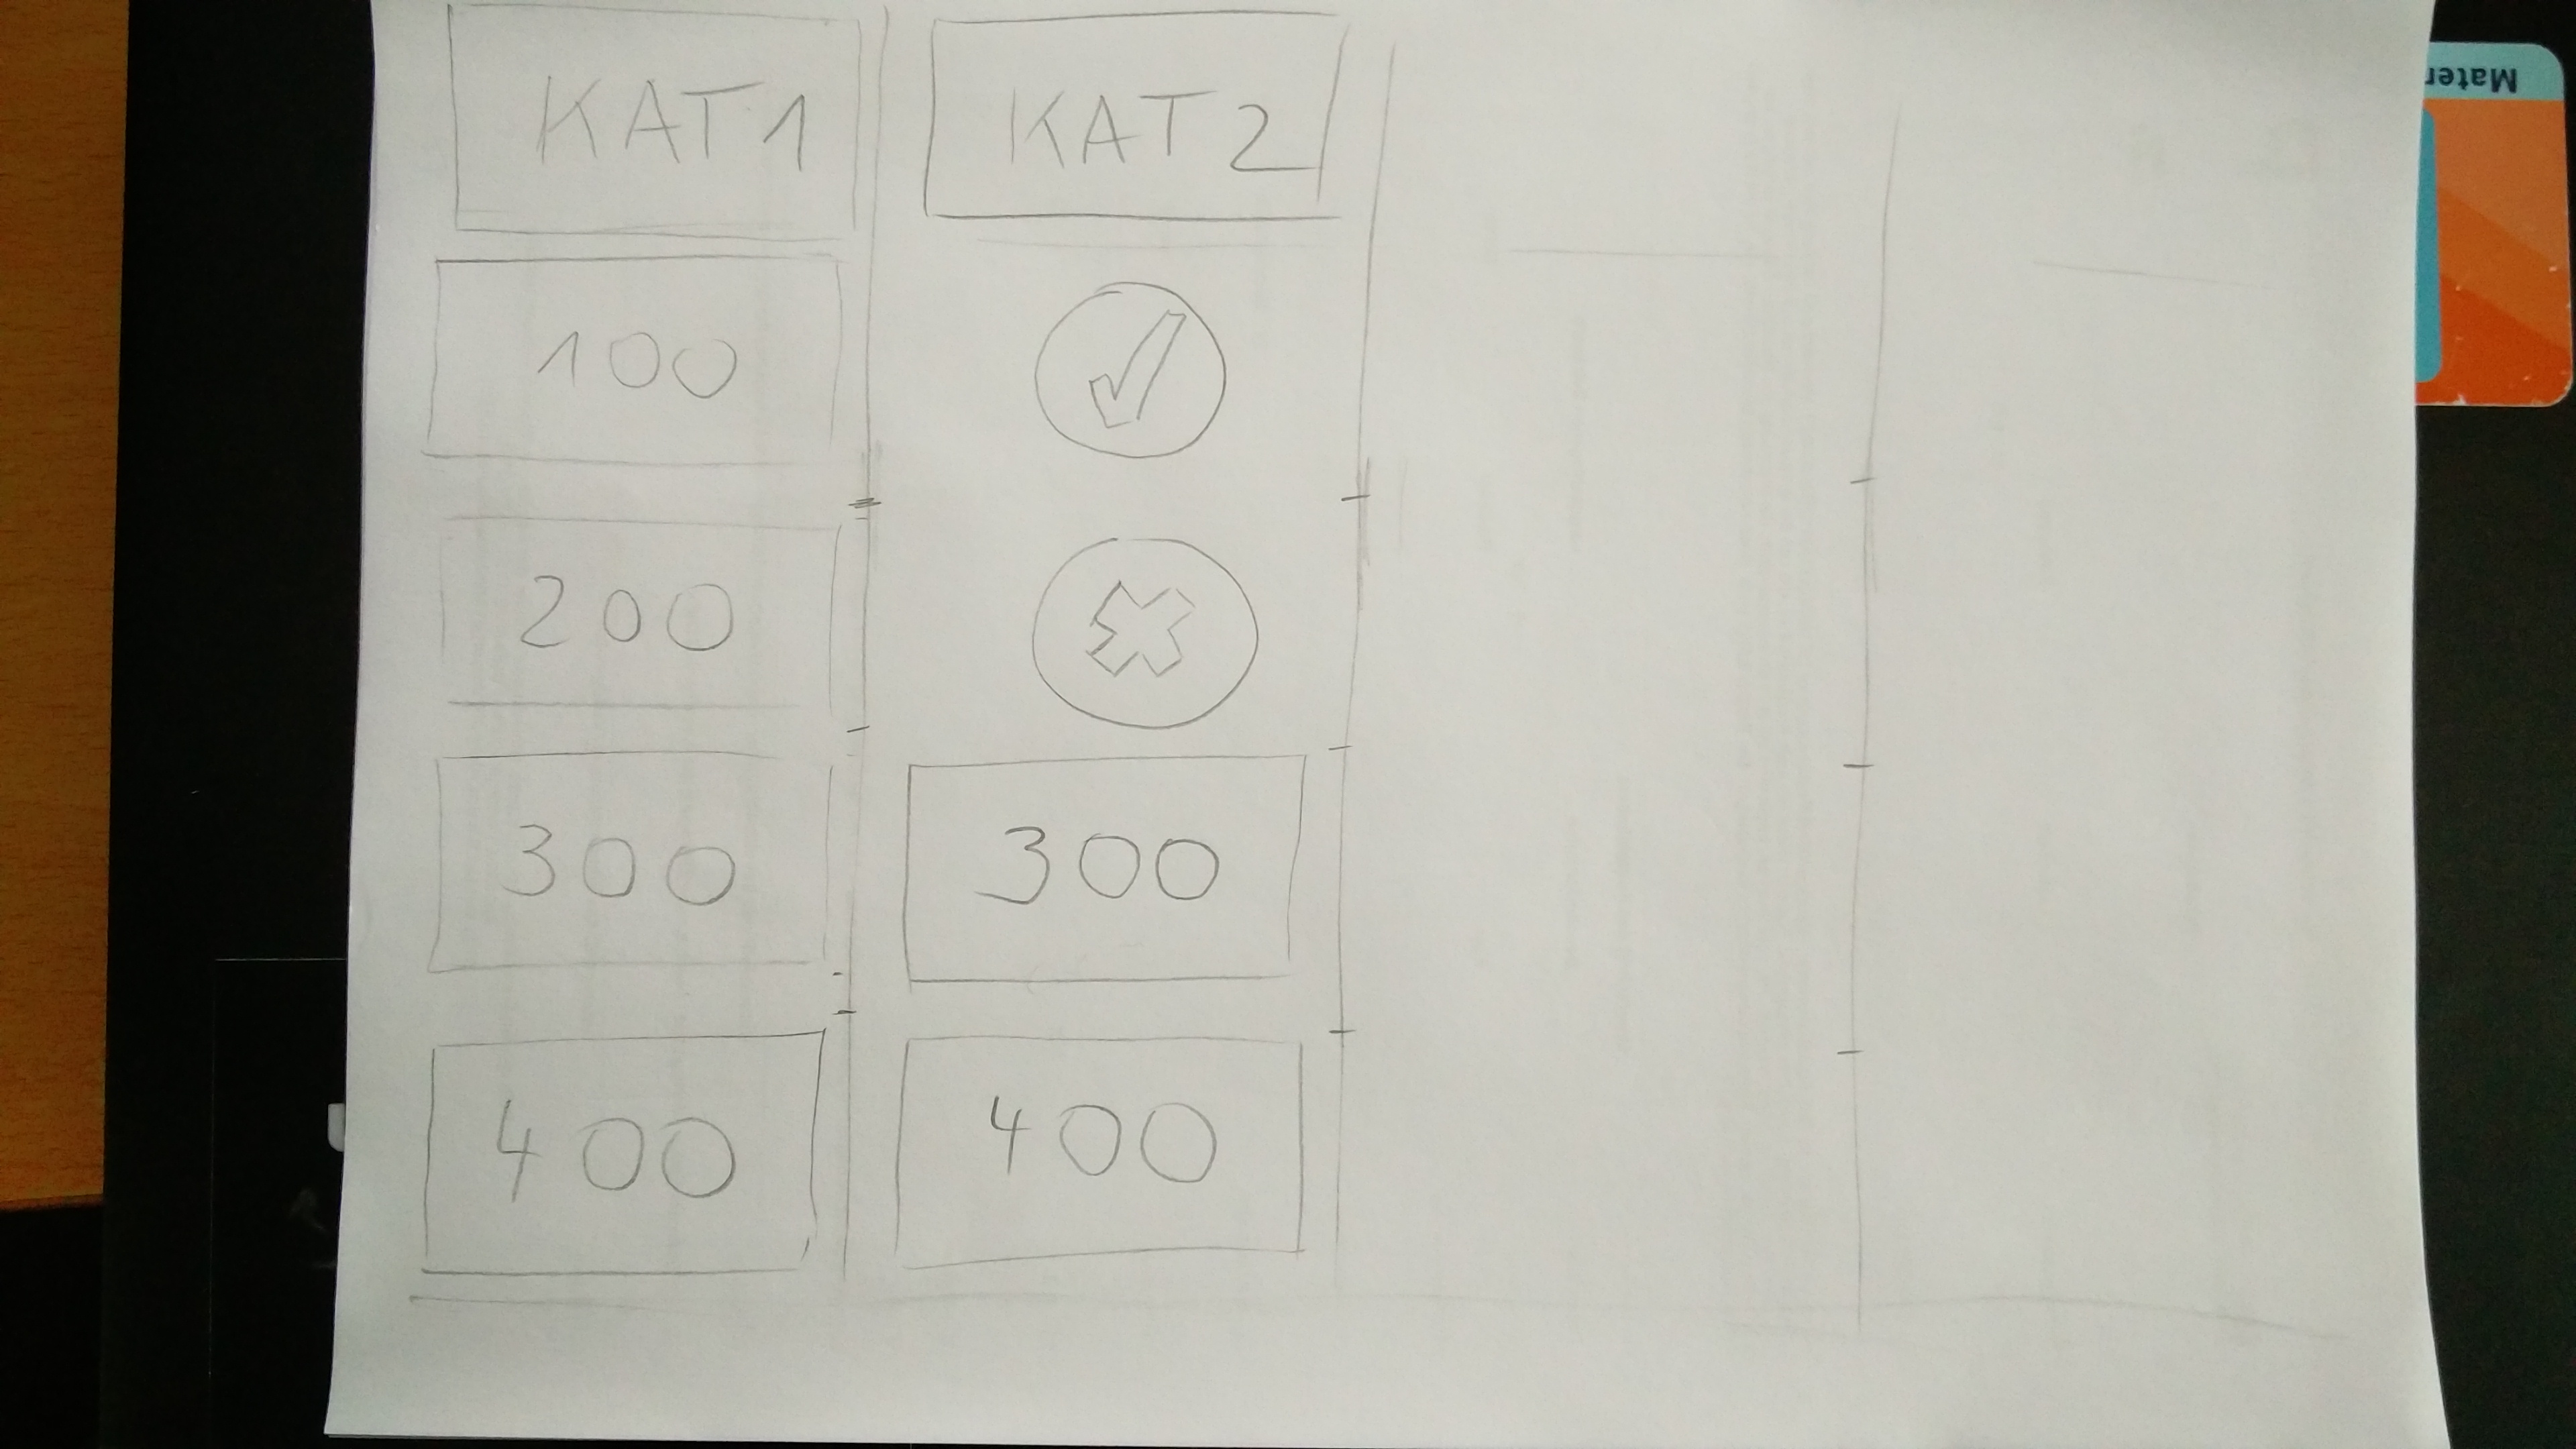 KAT 1 KAT 2
100
200
300 300
400 400
Mater